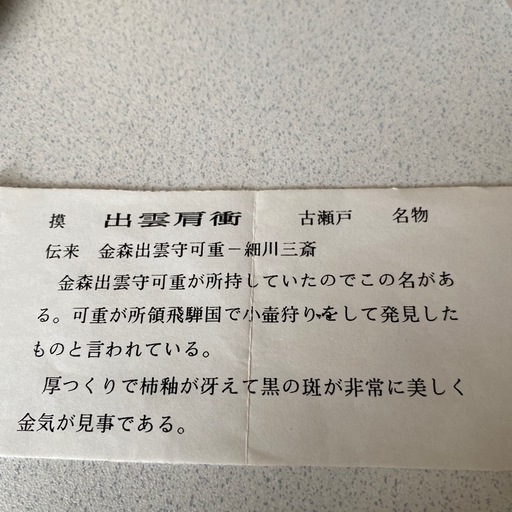 摸 出雲肩衝 古瀬戸 名物
伝来 金森出雲守可重－細川三斎
金森出雲守可重が所持していたのでこの名があ
る。可重が所領飛騨国で小壷狩りをして発見した
ものと言われている。
厚つくりで柿釉が冴えて黒の斑が非常に美しく
金気が見事である。